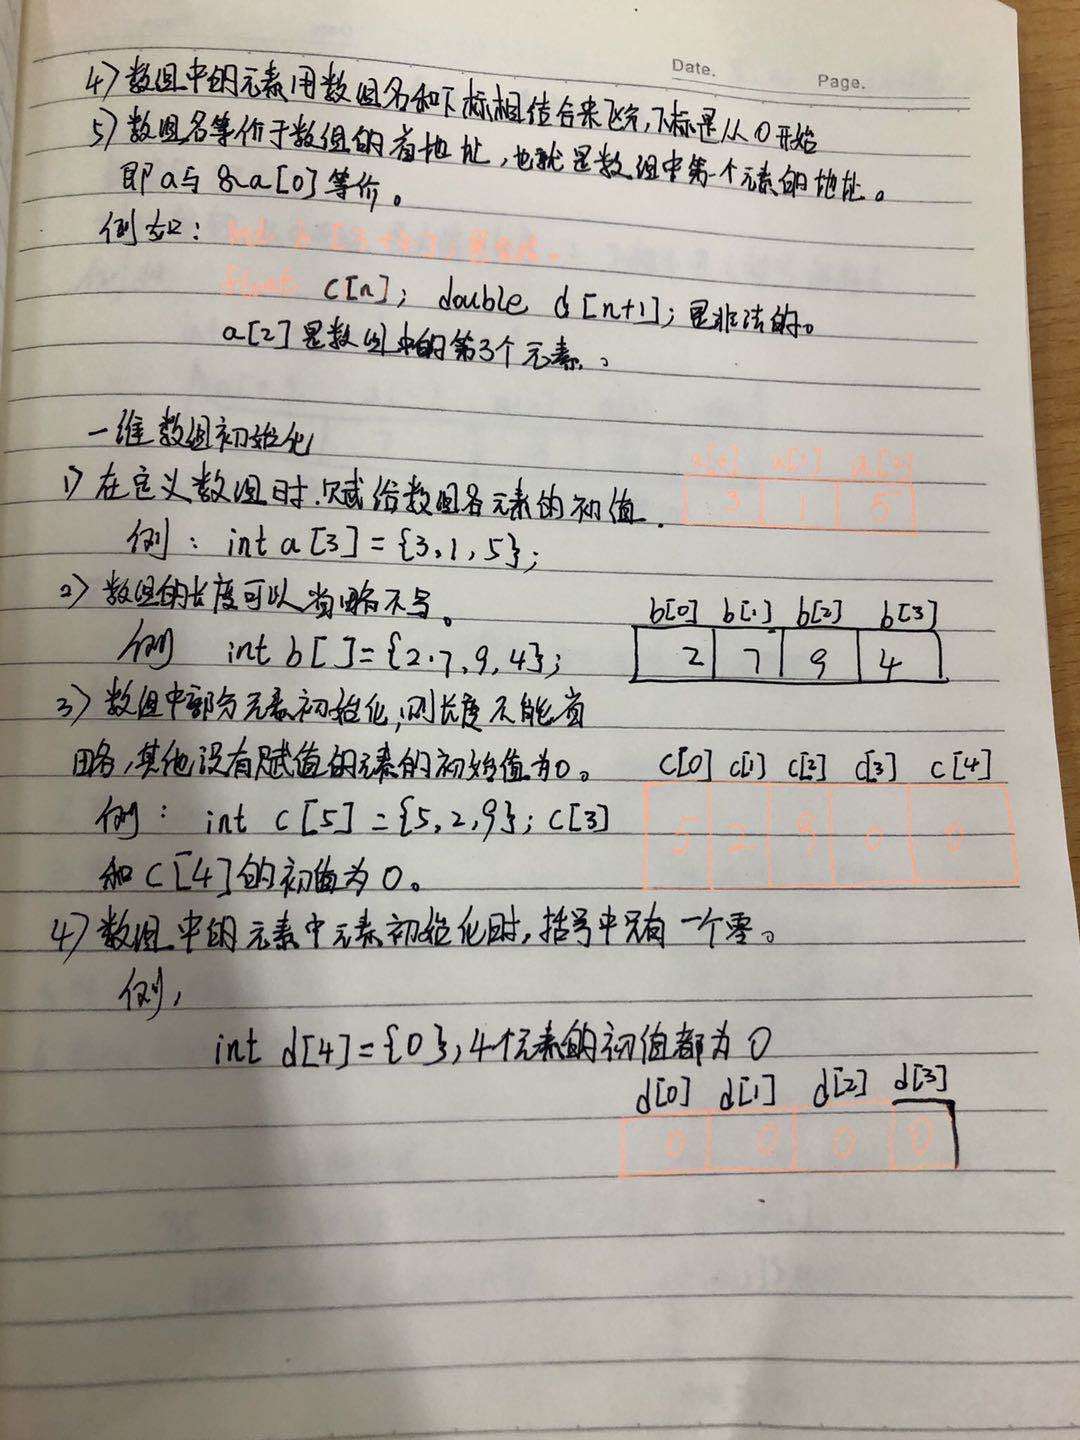 Date.
Page.
4) 数组中的元素用数组名和下标相结合来,下标是从0开始
5) 数组名等价于数组的首地址,也就是数组中第一个元素的地址。
即a与&a[0]等价。
例如:
float c[n]; double d[n+1]; 是非法的。
a[2]是数组中的第3个元素。
一维数组初始化
1) 在定义数组时.赋给数组各元素的初值.
a[0] a[1] a[2]
3 1 5
例: int a[3]={3,1,5};
2) 数组的长度可以省略不写。
b[0] b[1] b[2] b[3]
例 int b[]={2.7,9,4};
2 7 9 4
3) 数组中部分元素初始化,则长度不能省
略,其他没有赋值的元素的初始值为0。
c[0] c[1] c[2] c[3] c[4]
例: int c[5]={5,2,9}; c[3]
5 2 9 0 0
和c[4]的初值为0。
4) 数组中的元素中元素初始化时,括号中只有一个零。
例,
int d[4]={0},4个元素的初值都为0
d[0] d[1] d[2] d[3]
0 0 0 0